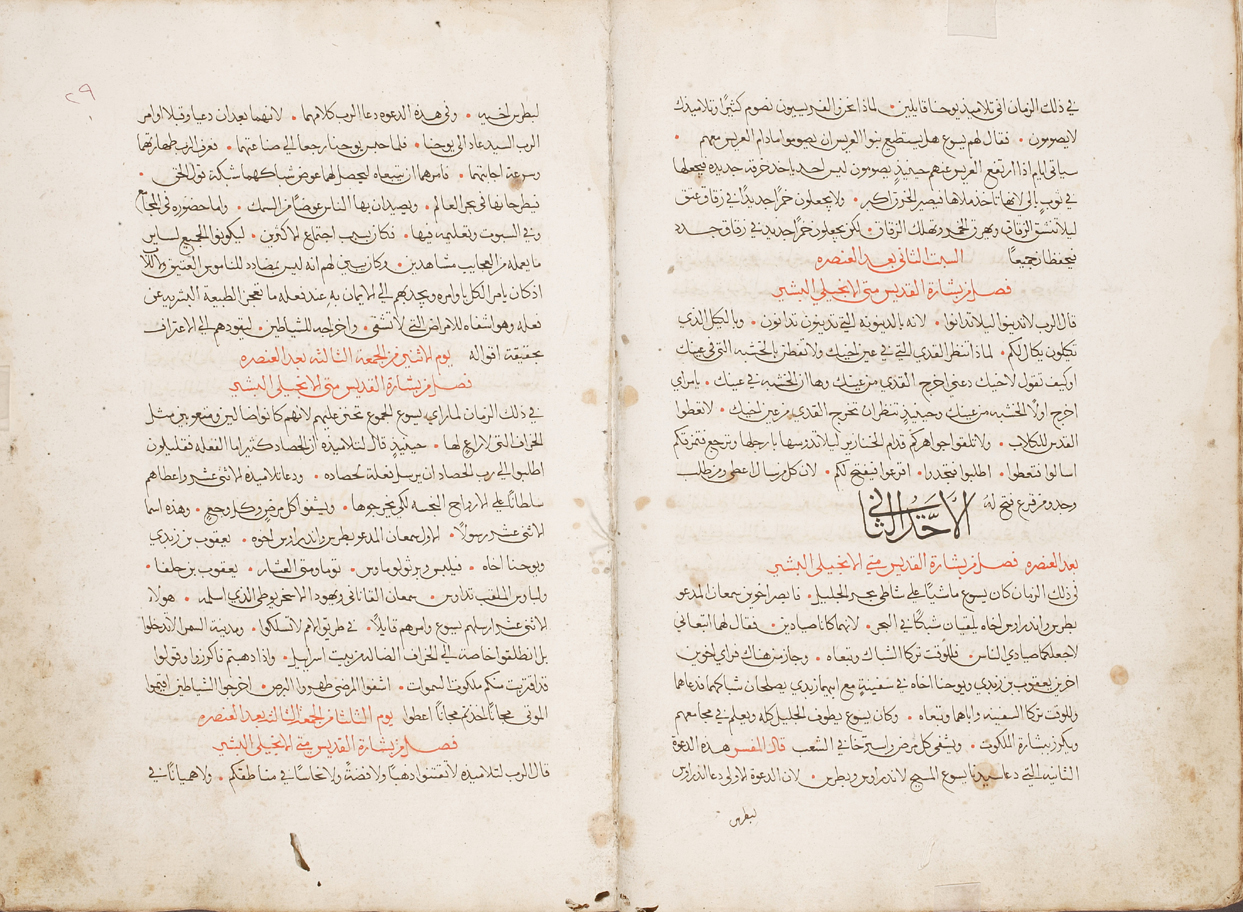 في ذلك الزمان اتى تلاميذ يوحنا قايلين • لماذا نحن والفريسيون نصوم كثيرًا وتلاميذك
لا يصومون • فقال لهم يسوع هل يستطيع بنوا العريس ان يصوموا مادام العريس معهم •
ستاتي ايام اذا ارتفع العريس عنهم حينيذٍ يصومون ليس احد ياخذ خرقه جديده فيجعلها
في ثوبٍ بالي لانها تاخذ ملاها فيصير الخرق اكبر • ولا يجعلون خمرًا جديدًا في زقاق عتق
ليلا تنشق الزقاق ويهرق الخمر وتهلك الزقاق • لكن يجعلون خمرًا جديد في زقاق جدد
فيحفظان جميعًا السبت الثاني بعد العنصره
فصل من بشارة القديس متى الانجيلي البشير
قال الرب لا تدينوا ليلا تدانوا • لانه بالدينونه التي تدينون تدانون • وبالكيل الذي
تكيلون يكال لكم • لماذا تنظر القدي التي في عين اخيك ولا تفطن بالخشبه التي في عينك
او كيف تقول لاخيك دعني اخرج القدي من عينك وها ان الخشبه في عينك • يامراي
اخرج اولًا الخشبه من عينك وحينيذٍ تنظر ان تخرج القدي من عين اخيك • لا تعطوا
القدس للكلاب • ولا تلقوا جواهركم قدام الخنازير ليلا تدوسها بارجلها وترجع فتمزقكم
اسالوا فتعطوا • اطلبوا فتجدوا • اقرعوا فيفتح لكم • لان كل من سال اعطي ومن طلب
وجد ومن قرع فتح له الاحد الثاني
بعد العنصره فصل من بشارة القديس متى الانجيلي البشير
في ذلك الزمان كان يسوع ماشيًا على شاطي بحر الجليل • فابصر اخوين سمعان المدعو
بطرس واندراوس اخاه يلقيان شبكًا في البحر • لانهما كانا صيادين • فقال لهما اتبعاني
لاجعلكما صيادي الناس • فللوقت تركا الشباك وتبعاه • وجاز من هناك فراي اخوين
اخرين يعقوب بن زبدي ويوحنا اخاه في سفينةٍ مع ابيهما زبدي يصلحان شباكهما فدعاهما
وللوقت تركا السفينه واباهما وتبعاه • وكان يسوع يطوف الجليل كله ويعلم في مجامعهم
ويكرز ببشارة الملكوت • ويشفي كل مرض واسترخا في الشعب قال المفسر هذه الدعوة
الثانيه التي دعا سيدنا يسوع المسيح لاندراوس وبطرس • لان الدعوة الاولى دعا اندراوس
لبطرس
٢٩
لبطرس اخيه • وفي هذه الدعوه دعا الرب كلاهما • لانهما بعد ان دعيا وقبلا اوامر
الرب السيد عاد الى يوحنا • فلما حبس يوحنا رجعا الي صناعتهما • فعرف الرب طهارتهما
وسرعة اجابتهما • فامرهما ان يتبعاه ليجعل لهما عوض شباكهما شبكة قول الحق •
فيطرحانها في بحر العالم • ويصيدان بها الناس عوضًا من السمك • ولما حضوره في المجامع
وفي السبوت وتعليمه فيها • فكان بسبب اجتماع الاكثرين • ليكونوا الجميع لساير
ما يعمله من العجايب مشاهدين • وكان يبين لهم انه ليس بمضادد للناموس العتيق والا لا
اذ كان يامر الكل باوامره ويجدبهم الي الايمان به عند فعله ما تعجز الطبيعه البشريه عن
فعله وهو شفاه للامراض التي لا تشفى • واخراجه للشياطين • ليقودهم الي الاعتراف
بحقيقة اقواله يوم الاثنين من الجمعة الثالثه بعد العنصره
فصل من بشارة القديس متى الانجيلي البشير
في ذلك الزمان لما راي يسوع الجموع تحنن عليهم لانهم كانوا ضالين ومنعوبين مثل
الخراف التي لا راعٍ لها • حينيذٍ قال لتلاميذه ان الحصاد كثير اما الفعله فقليلون
اطلبوا الي رب الحصاد ان يرسل فعلة لحصاده • ودعا تلاميذه الاثني عشر واعطاهم
سلطانًا على الارواح النجسه لكي يخرجوها • ويشفوا كل مرضٍ وكل وجعٍ • وهذه اسما
الاثني عشر رسولًا • الاول سمعان المدعو بطرس واندراوس اخوه • يعقوب بن زبدي
ويوحنا اخاه • فيلبس وبرثولوماوس • توما ومتى العشار • يعقوب بن حلفا •
ولباوس الملقب تداوس • سمعان القاناني ويهودا الاسخريوطي الذي اسلمه • هولا
الاثني عشر ارسلهم يسوع وامرهم قايلًا • في طريق الامم لا تسلكوا • ومدينة السمرا لا تدخلوا
بل انطلقوا خاصة الي الخراف الضاله من بيت اسراييل • واذا ذهبتم فاكرزوا وقولوا
قد اقتربت منكم ملكوت السموات • اشفوا المرضى طهروا البرص • اخرجوا الشياطين اقيموا
الموتى مجانًا اخذتم مجانًا اعطوا يوم الثلثا من الجمعة الثالثه بعد العنصره
فصل من بشارة القديس متى الانجيلي البشير
قال الرب لتلاميذه لا تقتنوا ذهبًا ولا فضةً ولا نحاسًا في مناطقكم • ولا هميانًا في